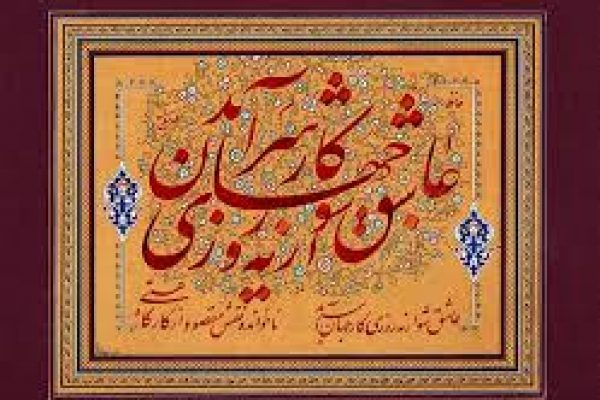 حافظ
عاشق شو ار نه روزی کار جهان سرآید
عاشق شو ار نه روزی کار جهان سرآید
ناخوانده نقش مقصود از کارگاه هستی